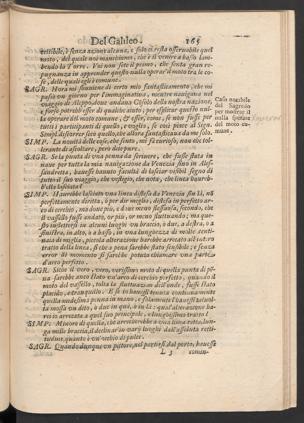 Del Galileo. 165
cettibile, è senza azione alcuna, e solo ci resta osservabile quel
moto, del quale noi manchiamo, che è il venire a basso lam-
bendo la Torre. Voi non sete il primo, che senta gran re-
pugnanza in apprender questo nulla operar'il moto tra le co-
se, delle quali egli è comune.
SAGR. Hora mi souuiene di certo mio fantasticamento, che mi
passò un giorno per l'immaginativa, mentre navigava nel
viaggio di Aleppo, dove andava Consolo della nostra nazione,
e forse potrebb'esser di qualche aiuto, per esplicar questo nul-
la operare del moto comune, & esser, come, se non fusse per
tutti i participanti di quello, e voglio, se così piace al Sign.
Simpl. discorrer seco quello, che allora fantasticava da me solo.
SIMP. La novità delle cose, che sento, mi fà curioso, non che tol-
lerante di ascoltare, però dite pure.
SAGR. Se la punta di una penna da scrivere, che fusse stata in
nave per tutta la mia navigazione da Venezia sino in Ales-
sandretta, havesse havuto facultà di lasciar visibil segno di
tutto il suo viaggio, che vestigio, che nota, che linea havreb-
b'ella lasciata?
SIMP. Havrebbe lasciato una linea distesa da Venezia sin là, nò
perfettamente diritta, ò per dir meglio, distesa in perfetto ar-
co di cerchio, ma dove più, e dove meno flessuosa, secondo, che
il vassello fusse andato, or più, or meno fluttuando; ma que-
sto inflettersi in alcuni luoghi un braccio, ò due, a destra, ò a
sinistra, in alto, ò a basso, in una lunghezza di molte centi-
naia di miglia, piccola alterazione harebbe arrecato all'intero
tratto della linea, sì che a pena sarebbe stato sensibile; e senza
error di momento si sarebbe potuta chiamare una parte
d'arco perfetto.
SAGR. Sì che il vero, vero, verissimo moto di quella punta di pe-
na sarebbe anco stato un'arco di cerchio perfetto, quando il
moto del vassello, tolta la fluttuazion dell'onde, fusse stato
placido, e tranquillo. E se io havessi tenuta continuamente
quella medesima penna in mano, e solamente l'havessi talvol-
ta mossa un dito, ò due in quà, ò in là; qual'alterazione ha-
rei io arrecata a quel suo principale, e lunghissimo tratto?
SIMP. Minore di quella, che arrecherebbe a una linea retta, lun-
ga mille braccia, il declinar in varij luoghi dall'assoluta retti-
tudine, quanto è un'occhio di pulce.
SAGR. Quando dunque un pittore, nel partirsi dal porto, havesse
L 3 comin-
Caso notabile
del Sagredo
per mostrar il
nulla operare
del moto co-
mune.